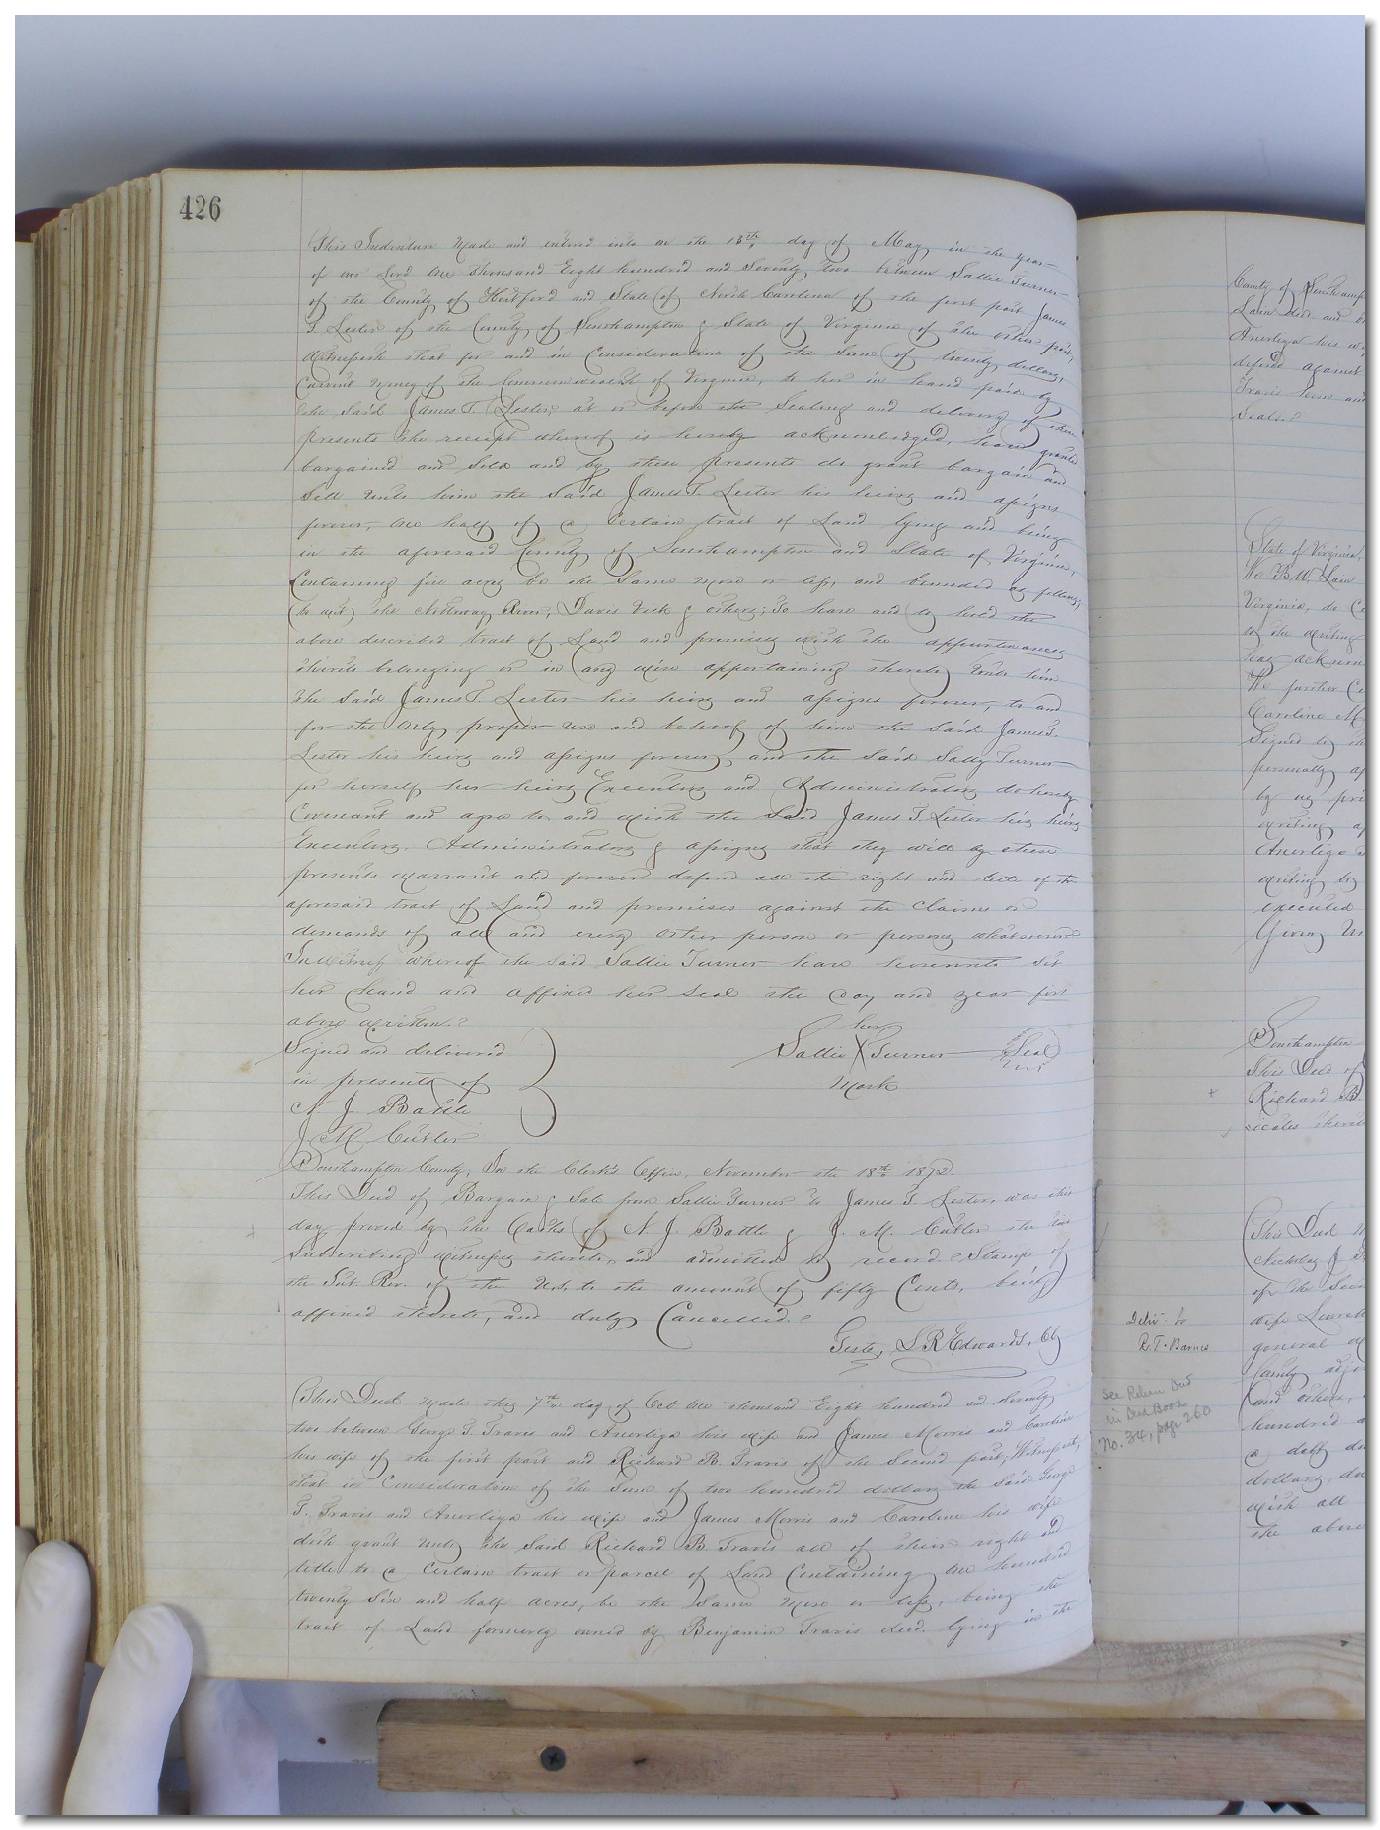 426
This Indenture made and entered into on the 13th day of May in the year
of our Lord One Thousand Eight hundred and Seventy two between Sallie Turner
of the County of Hertford and State of North Carolina of the first part James
T. Lester of the County of Southampton & State of Virginia of the other part,
Witnesseth that for and in Consideration of the Sum of twenty dollars,
Current money of the Commonwealth of Virginia, to her in hand paid by
the said James T. Lester, at or before the Sealing and delivery of these
presents the receipt whereof is hereby acknowledged, have granted
bargained and Sold and by these presents do grant bargain and
Sell unto him the said James T. Lester his heirs and assigns
forever, One half of a Certain tract of Land lying and being
in the aforesaid County of Southampton and State of Virginia,
Containing five acres be the Same more or less, and bounded as follows;
(to wit) The Nottoway River, Davis & others; To have and to hold the
above described tract of Land and premises with the appurtenances
thereto belonging or in any wise appertaining thereto unto him
the said James T. Lester his heirs and assigns forever, to and
for the only proper use and behoof of him the said James T.
Lester his heirs and assigns forever, and the said Sally Turner
for herself her heirs Executors and Administrators do hereby
Covenant and agree to and with the Said James T. Lester his heirs
Executors, Administrators & assigns that they will by these
presents warrant and forever defend all the right and title of the
aforesaid tract of Land and premises against the Claims or
demands of all and every other person or persons whatsoever
In witness whereof the said Sallie Turner have hereunto set
her hand and affixed her seal the day and year first
above written.
Signed and delivered
in presents of
N. J. Battle
J. M. Cutler
her
Sallie X Turner Seal
mark
Southampton County, In the Clerk's Office, November the 18th 1872.
This Deed of Bargain & Sale from Sallie Turner to James T. Lester, was this
day proved by the Oaths of N. J. Battle & J. M. Cutler the two
Subscribing witnesses thereto, and admitted to record. Stamp of
the Int. Rev. of the U.S. to the amount of fifty Cents, being
affixed thereto, and duly Cancelled.
Teste, L R Edwards, Clk
This Deed made this 7th day of Oct One thousand Eight hundred and seventy
two between George T. Travis and Anerliza his wife and James Morris and Caroline
his wife of the first part and Richard B. Travis of the Second part, Witnesseth,
that in Consideration of the Sum of two hundred dollars the said George
T. Travis and Anerliza his wife and James Morris and Caroline his wife
doth grant unto the Said Richard B. Travis all of their right and
title to a Certain tract or parcel of Land Containing One hundred
twenty Six and half acres, be the Same more or less, being the
tract of Land formerly owned by Benjamin Travis decd. lying in the
County of Southamp
Anerliza his wi
defend against
Travis him and
Seals
State of Virginia,
We B. W.
Virginia, do Ce
to the writing
was acknow
We further Ce
Caroline M
Signed to the
personally ap
by us pri
writing a
Anerliza
writing to
executed
Given un
Southampton
This Deed of
Richard B.
icates thereto
Deliv to
R. T. Barnes
See Release Deed
in Deed Book
No. 34, page 260
This Deed
Nicholas J
of the Seco
wife
general
County adjo
and others,
hundred a
a debt du
dollars du
with all
the above